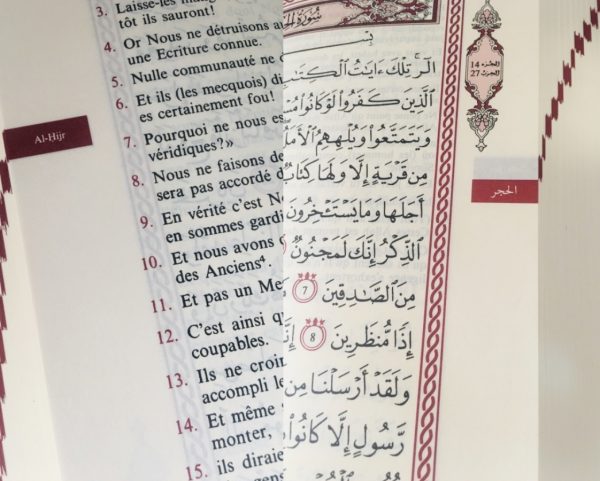 3. Laisse-les
tôt ils sauront!
4. Or Nous ne détruisons
une Ecriture connue.
5. Nulle communauté ne
6. Et ils (les mecquois)
es certainement fou!
7. Pourquoi ne nous
véridiques?»
8. Nous ne faisons
sera pas accordé
9. En vérité c'est
en sommes
10. Et nous avons
des Anciens⁴.
11. Et pas un
12. C'est ainsi
coupables.
13. Ils ne
accompli
14. Et même
monter,
15. ils
Al-Ḥijr
سُورَةُ
الٓرۚ تِلْكَ ءَايَٰتُ ٱلْكِتَٰبِ
ٱلَّذِينَ كَفَرُوا۟ لَوْ كَانُوا۟
وَيَتَمَتَّعُوا۟ وَيُلْهِهِمُ
مِن قَرْيَةٍ إِلَّا وَلَهَا
أَجَلَهَا وَمَا يَسْتَـْٔخِرُونَ
ٱلذِّكْرُ إِنَّكَ لَمَجْنُونٌ
مِنَ ٱلصَّٰدِقِينَ 7
إِذًا مُّنظَرِينَ 8
وَلَقَدْ أَرْسَلْنَا مِن
رَّسُولٍ إِلَّا كَانُوا۟
الجزء 14
الحزب 27
الحجر